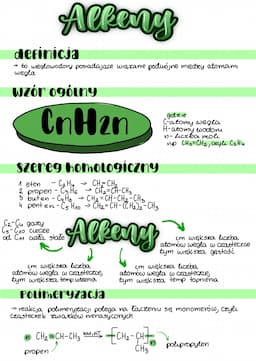 Alkeny
definicja
→ to węglowodory posiadające wiązanie podwójne między atomami
węgla
wzór ogólny
CnH2n
gdzie
C-atomy węgla
H-atomy wodoru
n-liczba moli
np CH2=CH2, czyli C2H4
szereg homologiczny
1 eten - C2H4 → CH2=CH2
2 propen - C3H6 → CH2=CH-CH3
3 buten - C4H8 → CH2=CH-CH2-CH3
4 penten - C5H10 → CH2=CH-(CH2)2-CH3
gazy
ciecze
ciała stałe
Alkeny
im większa liczba
atomów węgla w cząsteczce
tym większa gęstość
im większa liczba
atomów węgla w cząsteczce,
tym większa temp wrzenia
im większa liczba
atomów węgla w cząsteczce
tym większa temp topnienia
Polimeryzacja
→ reakcja polimeryzacji polega na łączeniu się monomerów, czyli
cząsteczek związków nienasyconych
n CH2=CH-CH3 → [CH2-CH]n
CH3
propen
polipropylen